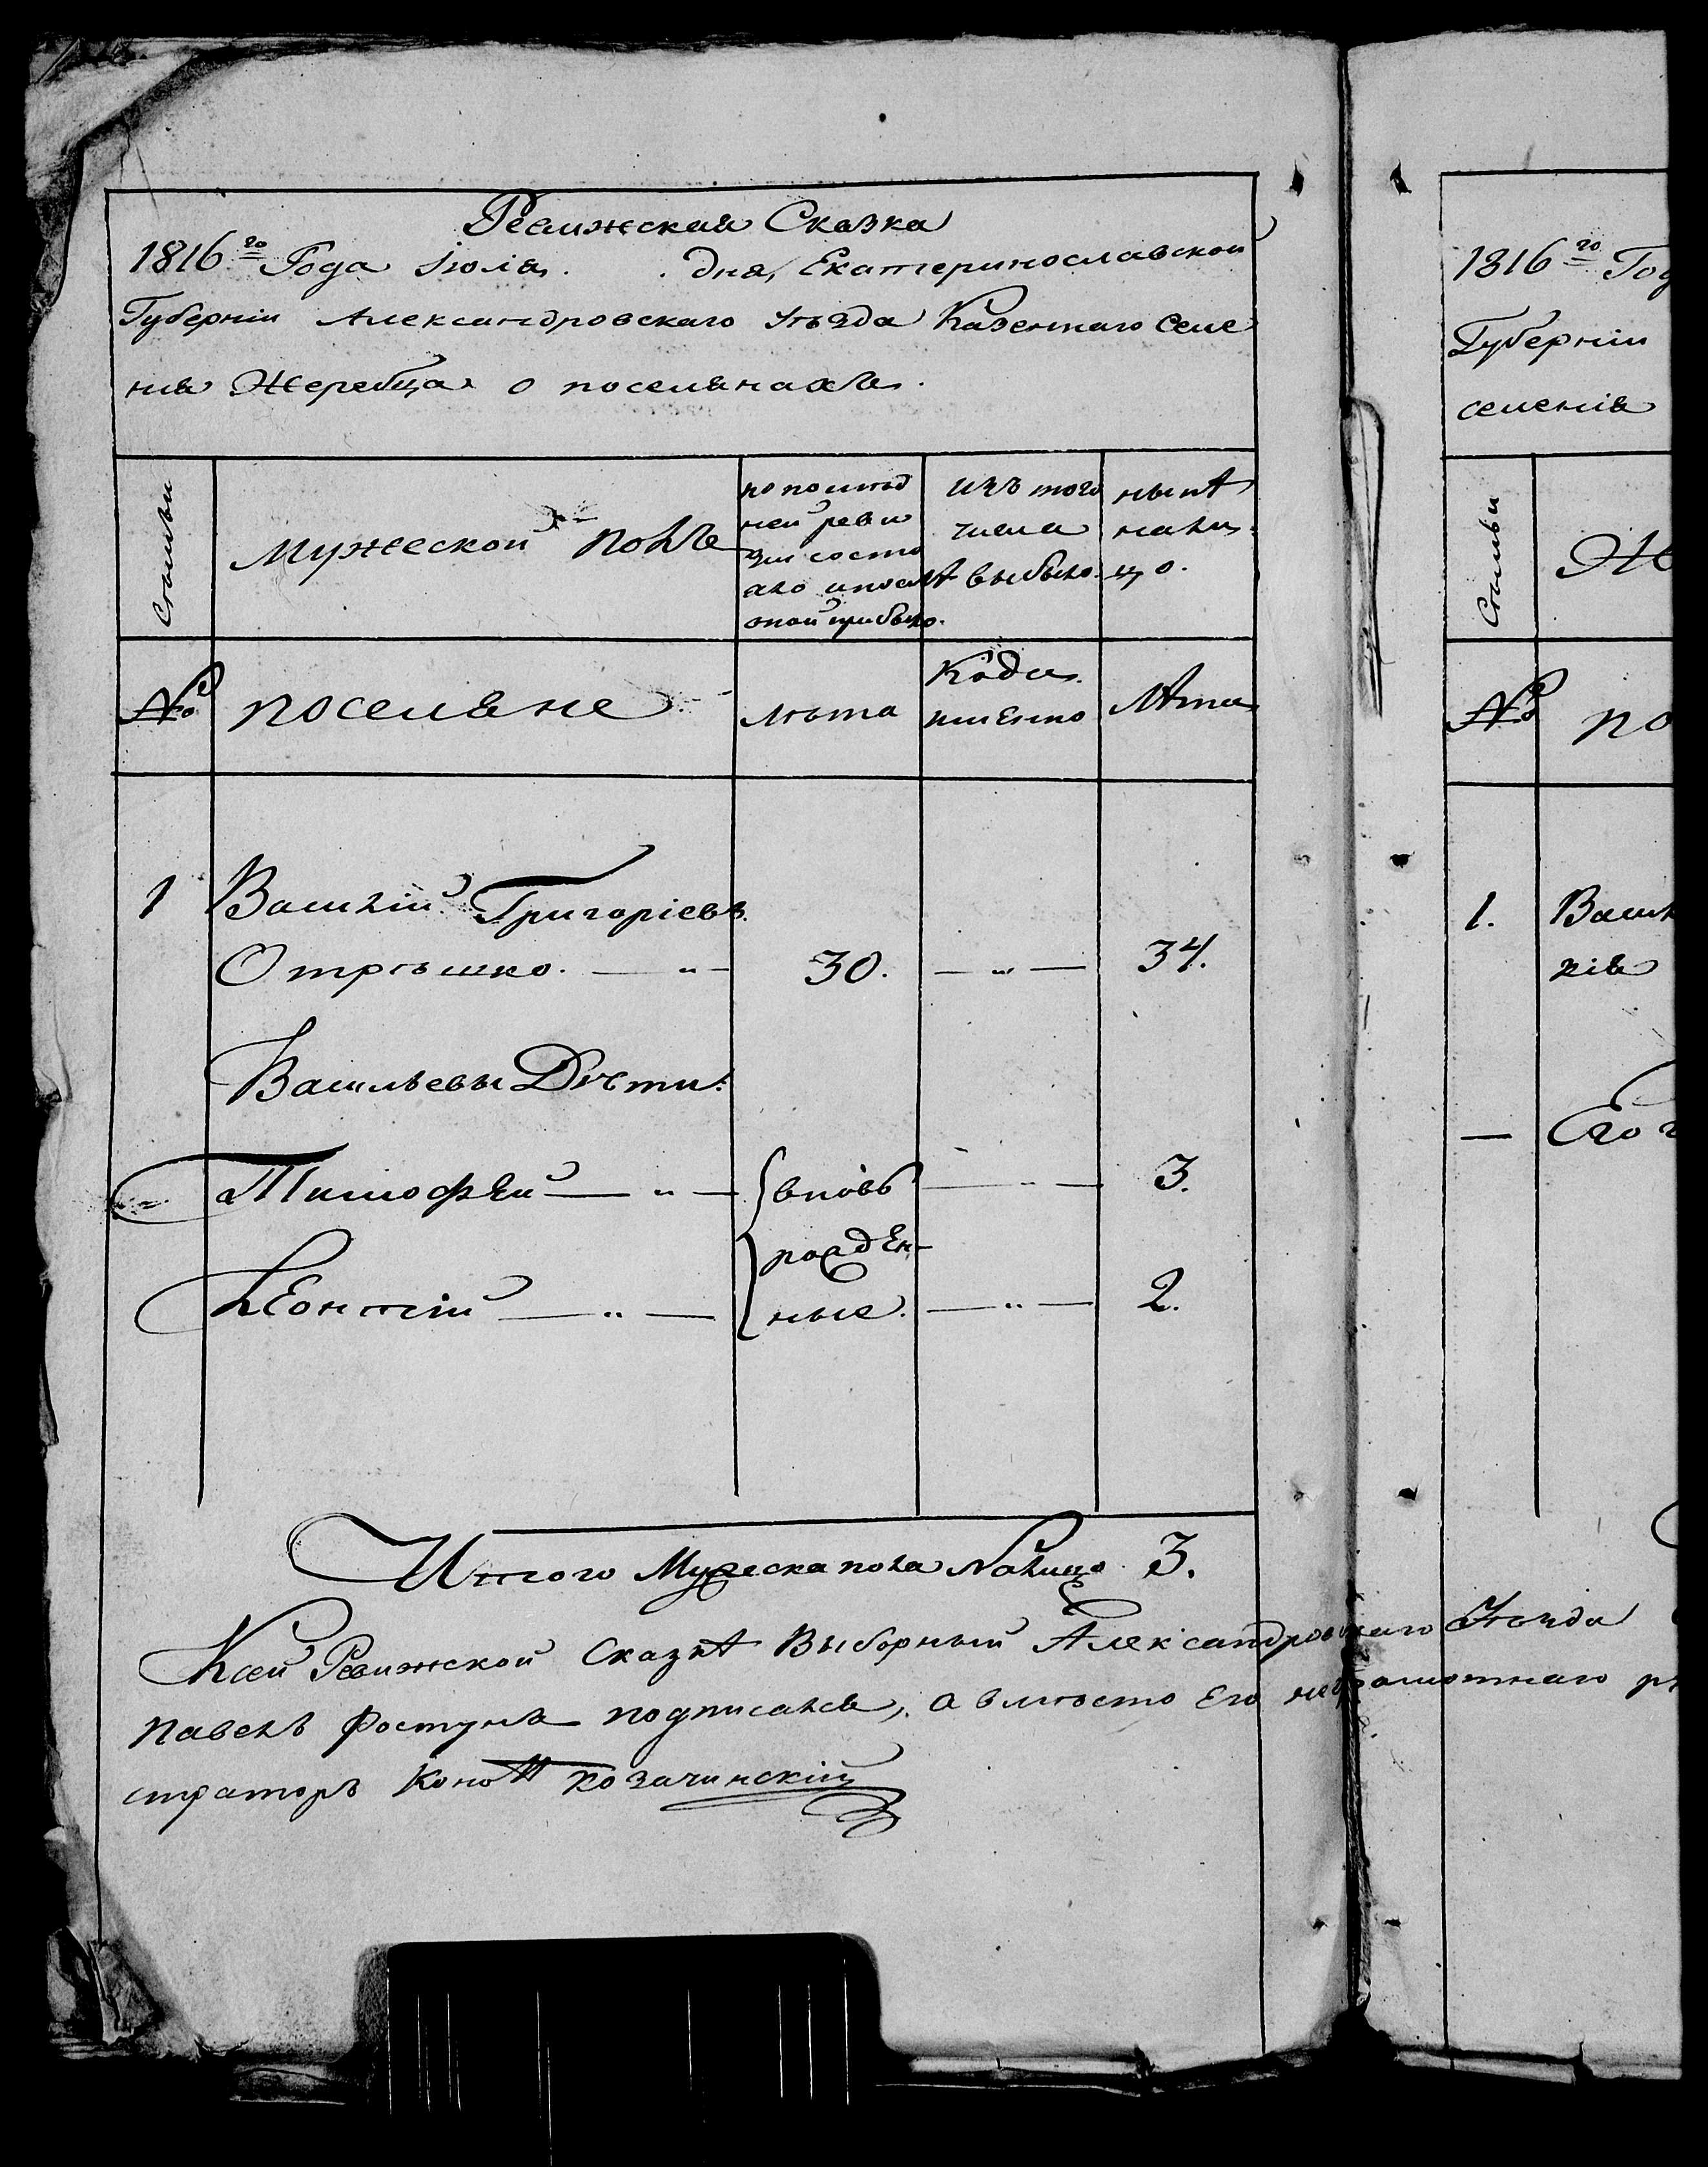 Ревижская Сказка
1816го Года Iюля . . дня, Екатеринославской
Губернiи Александровскаго уѣзда Казеннаго селе
нiя Жеребца о поселянахъ.
Статьи
Мужеской полъ
по послѣд
ней реви
зiи состо
яло и послѣ
оной прибыло.
изъ того
числа
выбыло.
нынѣ
на ли-
цо.
№
поселяне
лѣта
Когда
имЕнно
лѣта
1 Василiй Григорiевъ
Отрѣшко. — „ — 30. — „ — 34.
Васильевы Дѣти:
Тимофей — „ — вновь — „ — 3.
рожден-
Леонтiй — „ — ные. — „ — 2.
Итого Мужеска пола Налицо 3.
К сей Ревижской Сказкѣ Выборный Александровскаго уѣзда
Павелъ подписался, а вмѣсто Его неграмотнаго
страторъ Козачинскiй
1816го Год
Губернiи
селенiя
Статьи
Же
№
по
1. Васил
кiя
— Его